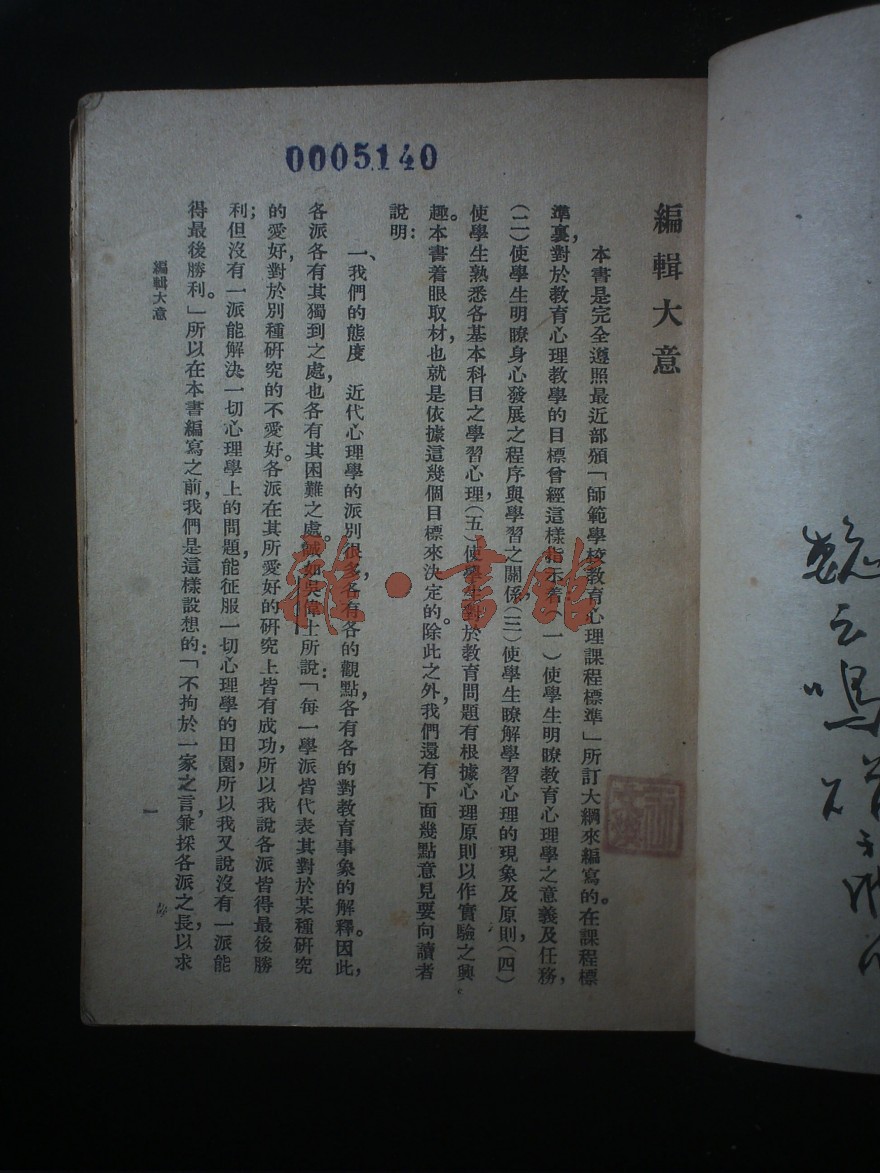 0005140
編輯大意
本書是完全遵照最近部頒「師範學校教育心理課程標準」所訂大綱來編寫的。在課程標
準裏，對於教育心理教學的目標曾經這樣指示着（一）使學生明瞭教育心理學之意義及任務，
（二）使學生明瞭身心發展之程序與學習之關係，（三）使學生瞭解學習心理的現象及原則（四）
使學生熟悉各基本科目之學習心理，（五）使學生對於教育問題有根據心理原則以作實驗之興
趣。本書着眼取材，也就是依據這幾個目標來決定的。除此之外，我們還有下面幾點意見要向讀者
說明：
一、我們的態度　近代心理學的派別很多，各有各的觀點，各有各的對教育事象的解釋。因此，
各派各有其獨到之處，也各有其困難之處。誠如吳偉士所說：「每一學派皆代表其對於某種研究
的愛好，對於別種研究的不愛好。各派在其所愛好的研究上皆有成功，所以我說各派皆得最後勝
利；但沒有一派能解決一切心理學上的問題，能征服一切心理學的田園，所以我又說沒有一派能
得最後勝利。」所以在本書編寫之前，我們是這樣設想的：「不拘於一家之言，兼採各派之長，以求
編輯大意
一
雜·書館